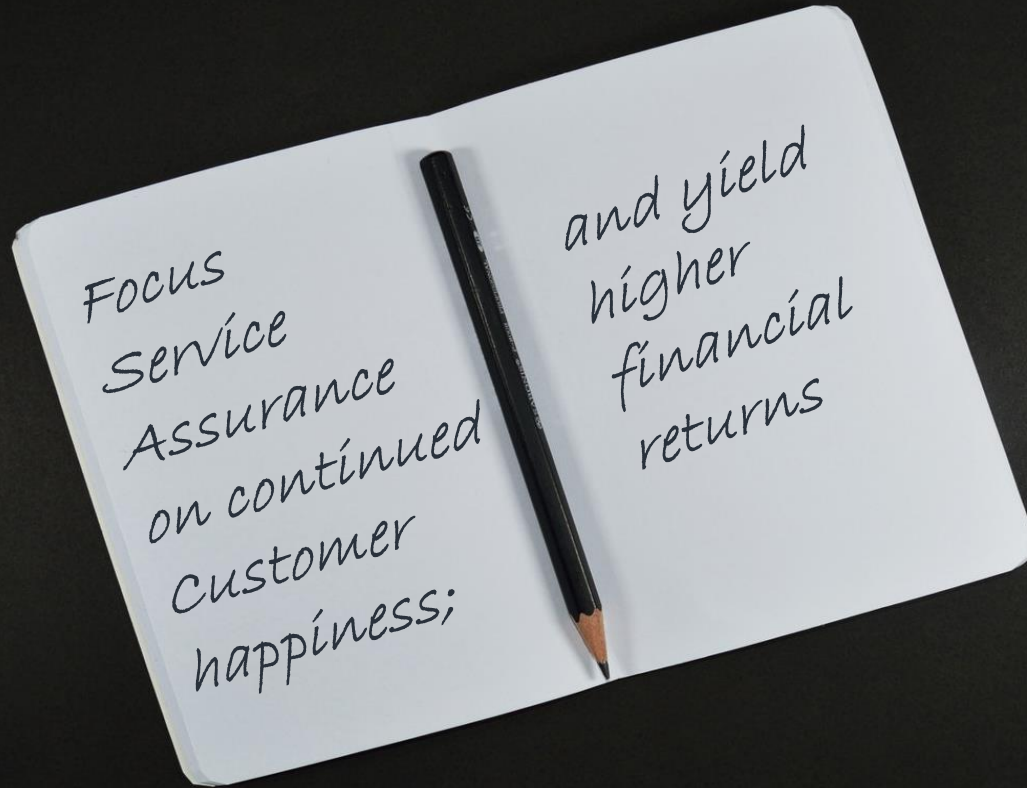 Focus
Service
Assurance
on continued
Customer
happiness;
and yield
higher
financial
returns